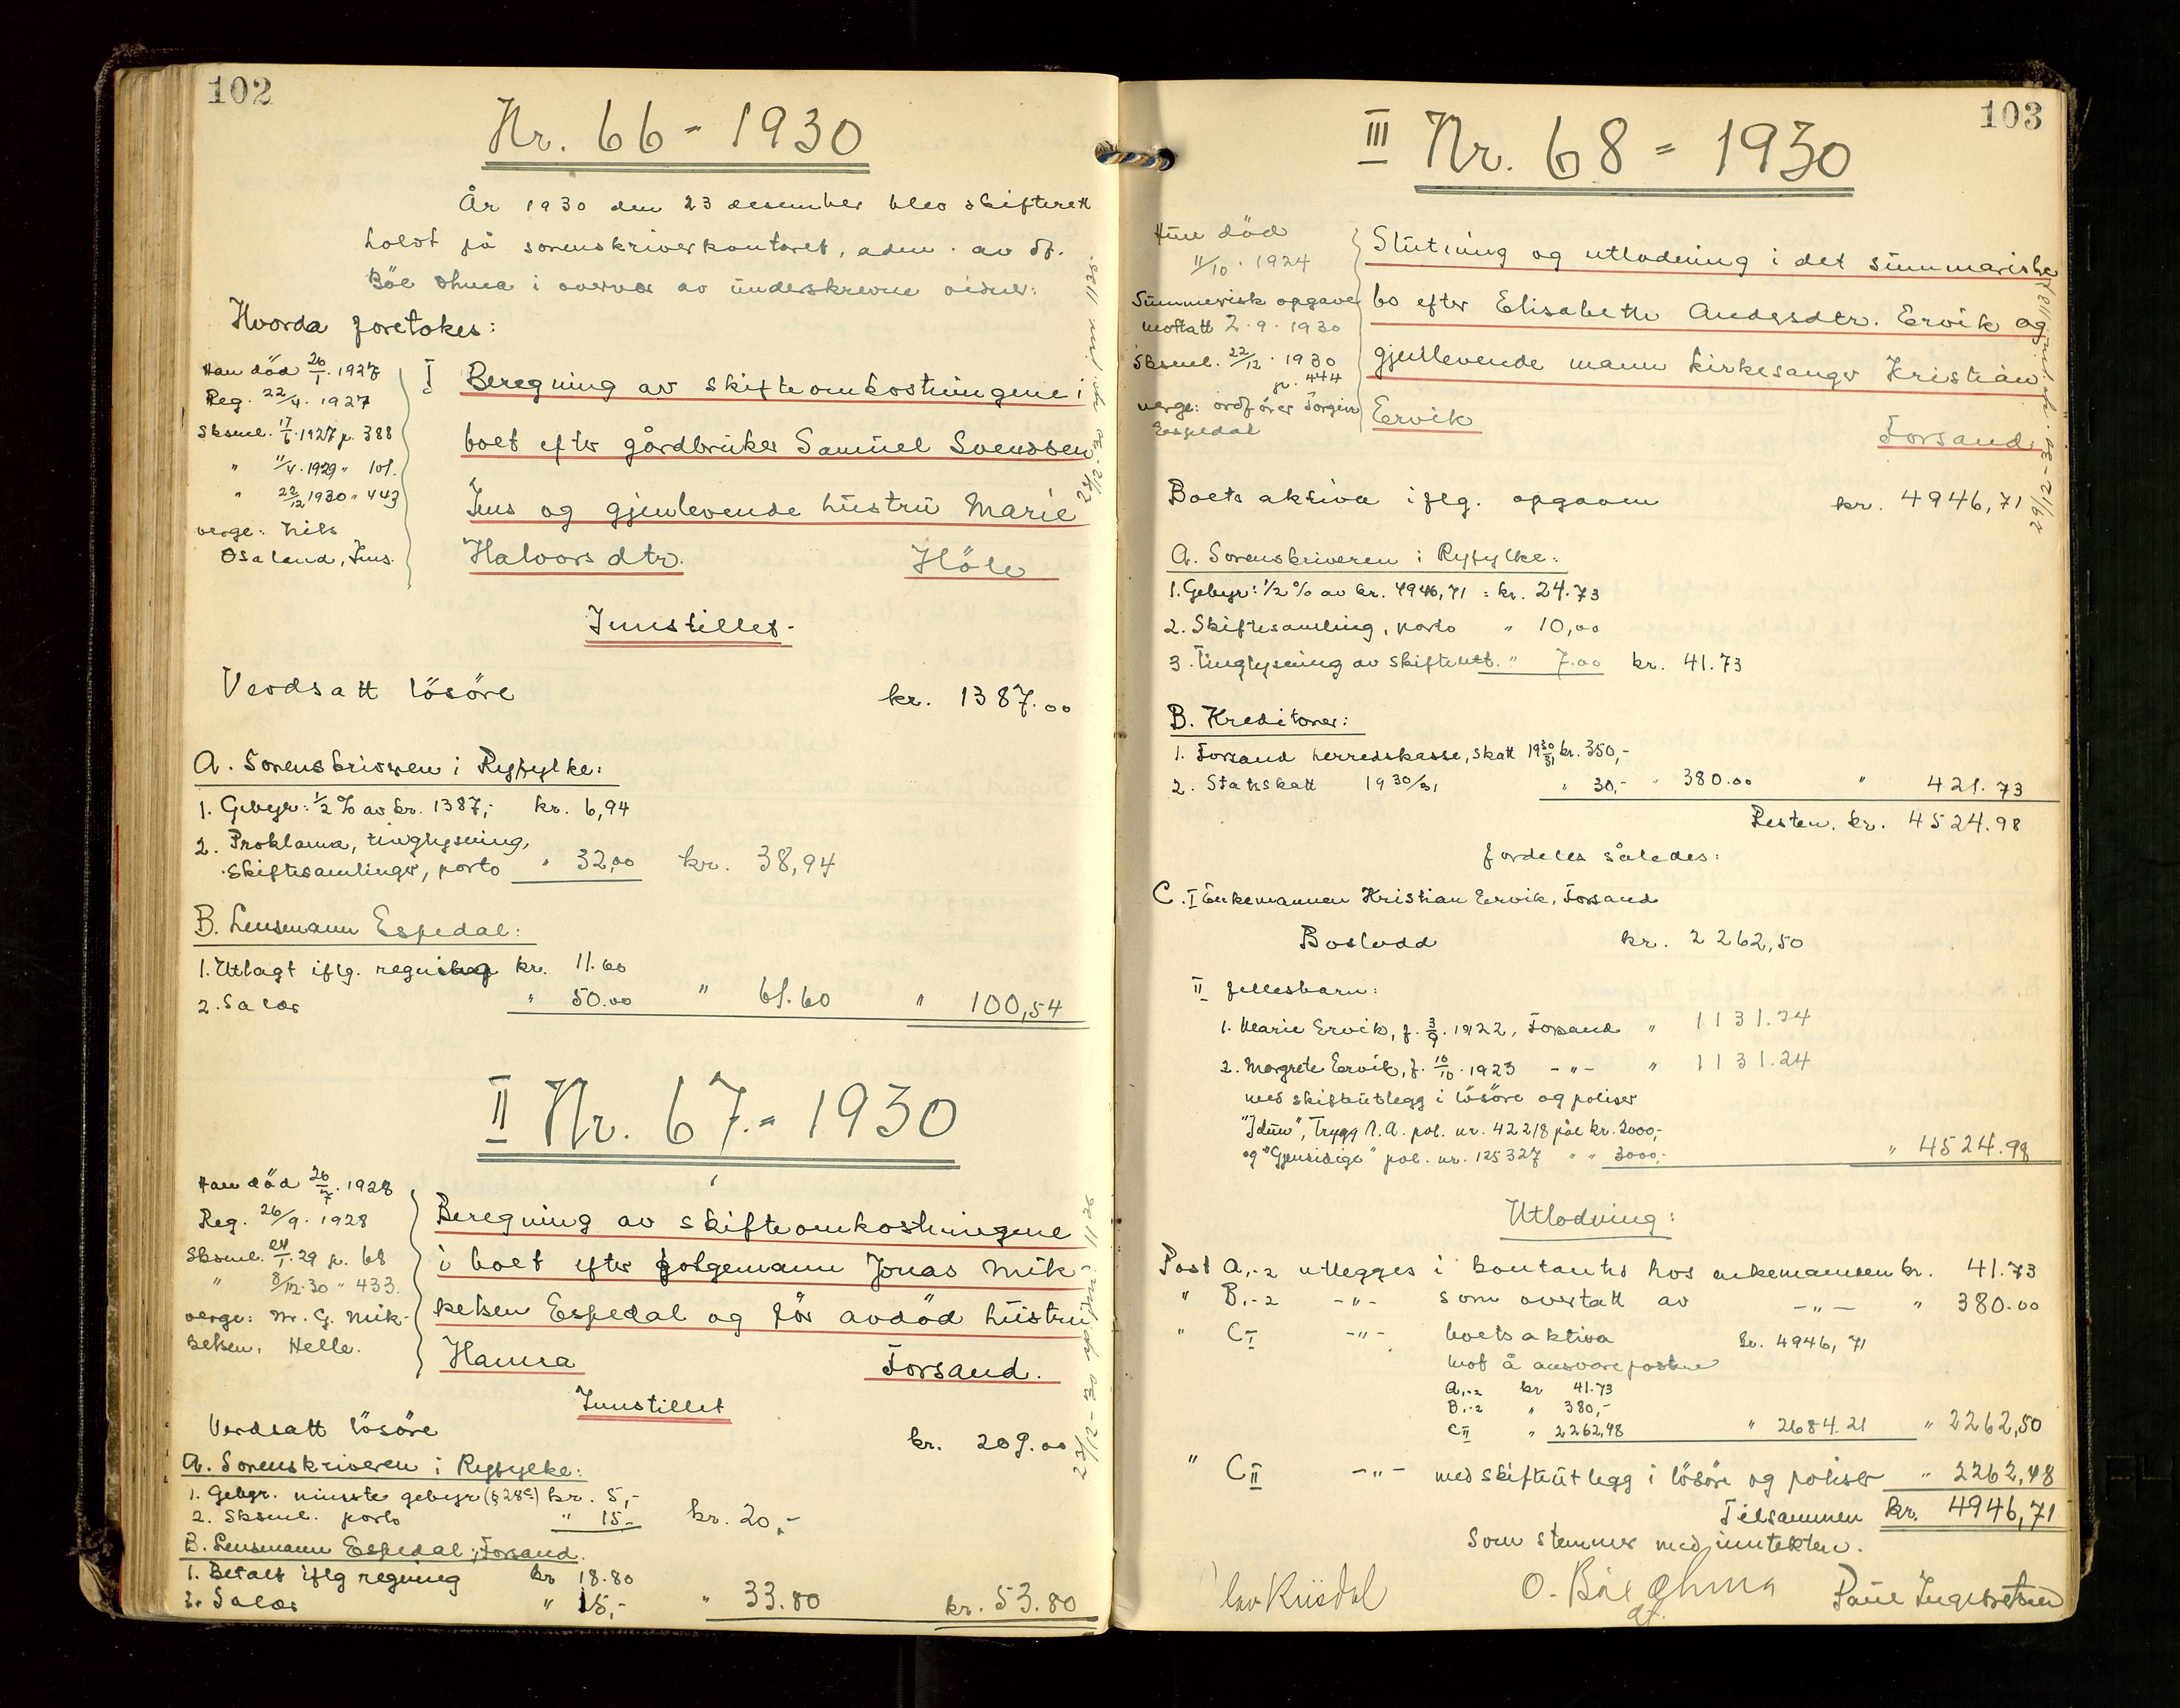 102
Nr. 66 - 1930
År 1930 den 23 desember blev skifterett
holdt på sorenskriverkontoret, adm. av df.
Böe Ohma i overvær av underskrevne vidner:
Hvorda foretokes:
Han död 26/1. 1927
Reg. 22/4. 1927
Sksml. 17/6. 1927 p. 388
" 11/4. 1929 " 101.
" 22/12 1930 " 443
verge: Nils
Osaland, Ims.
I Beregning av skifteomkostningene i
boet efter gårdbruker Samuel Svendsen
Ims og gjenlevende hustru Marie
Halvorsdtr. Höle
23/12-30 jnr. 1125.
Innstillet-
Verdsatt lösöre kr. 1387.00
A. Sorenskriveren i Ryfylke:
1. Gebyr: 1/2 % av kr. 1387,- kr. 6,94
2. Proklama, tinglysning,
skiftesamlinger, porto " 32,00 kr. 38,94
B. Lensmann Espedal:
1. Utlagt iflg. regning kr. 11.60
2. Salær " 50.00 " 61.60 " 100,54
II Nr. 67.- 1930
Han död 26/7. 1928
Reg. 26/9. 1928
Sksml. 24/1. 29 p. 68
" 8/12. 30 " 433.
verge: M. G. Mik-
kelsen, Helle.
Beregning av skifteomkostningene
i boet efter folgemann Jonas Mik-
kelsen Espedal og før avdöd hustru
Hanna Forsand.
23/12-30 jnr. 1126
Innstillet
Verdsatt lösöre kr. 209.00
A. Sorenskriveren i Ryfylke:
1. Gebyr. minste gebyr (§ 28c) kr. 5,-
2. Sksml. porto " 15.- kr. 20,-
B. Lensmann Espedal, Forsand.
1. Betalt iflg regning kr 18.80
2. Salær " 15,- " 33.80 kr. 53.80
103
III Nr. 68 - 1930
Hun död
11/10. 1924
Summarisk opgave
mottatt 2. 9. 1930
Sksml. 22/12. 1930
p. 444
verge: ordförer Torgeir
Espedal
Slutning og utlodning i det summariske
bo efter Elisabeth Andersdtr. Ervik og
gjenlevende mann kirkesanger Kristian
Ervik
Forsand.
Boets aktiva iflg. opgaven kr. 4946,71
A. Sorenskriveren i Ryfylke:
1. Gebyr: 1/2 % av kr. 4946,71 = kr. 24.73
2. Skiftesamling, porto " 10,00
3. Tinglysning av skifteutl. " 7.00 kr. 41.73
B. Kreditorer:
1. Forsand herredskasse, skatt 1930/31 kr. 350,-
2. Statsskatt 1930/31 " 30,- " 380.00 " 421.73
Resten kr. 4524.98
fordeles således:
C. I Enkemannen Kristian Ervik, Forsand
Boslodd kr. 2262,50
II fellesbarn:
1. Marie Ervik, f. 3/9. 1922, Forsand " 1131.24
2. Margrete Ervik, f. 10/10. 1923 -"- " 1131.24
med skifteutlegg i lösöre og poliser
"Idun", Trygg A. A. pol. nr. 42218 pål kr. 2000,-
og "Gjensidige" pol. nr. 125327 " " 3000,- " 4524.98
Utlodning:
Post A,-2 utlegges i kontanter hos enkemannen kr. 41.73
" B,-2 -"- som overtatt av -"- " 380.00
" CI -"- boets aktiva kr. 4946,71
mot å ansvare postene
A,-2 kr 41.73
B,-2 " 380,-
CII " 2262,48 " 2684.21 " 2262,50
" CII -"- med skifteutlegg i lösöre og poliser " 2262,48
Tilsammen kr. 4946,71
som stemmer med inntekten.
O. Böe Ohma
df.
Paul Ingebretsen